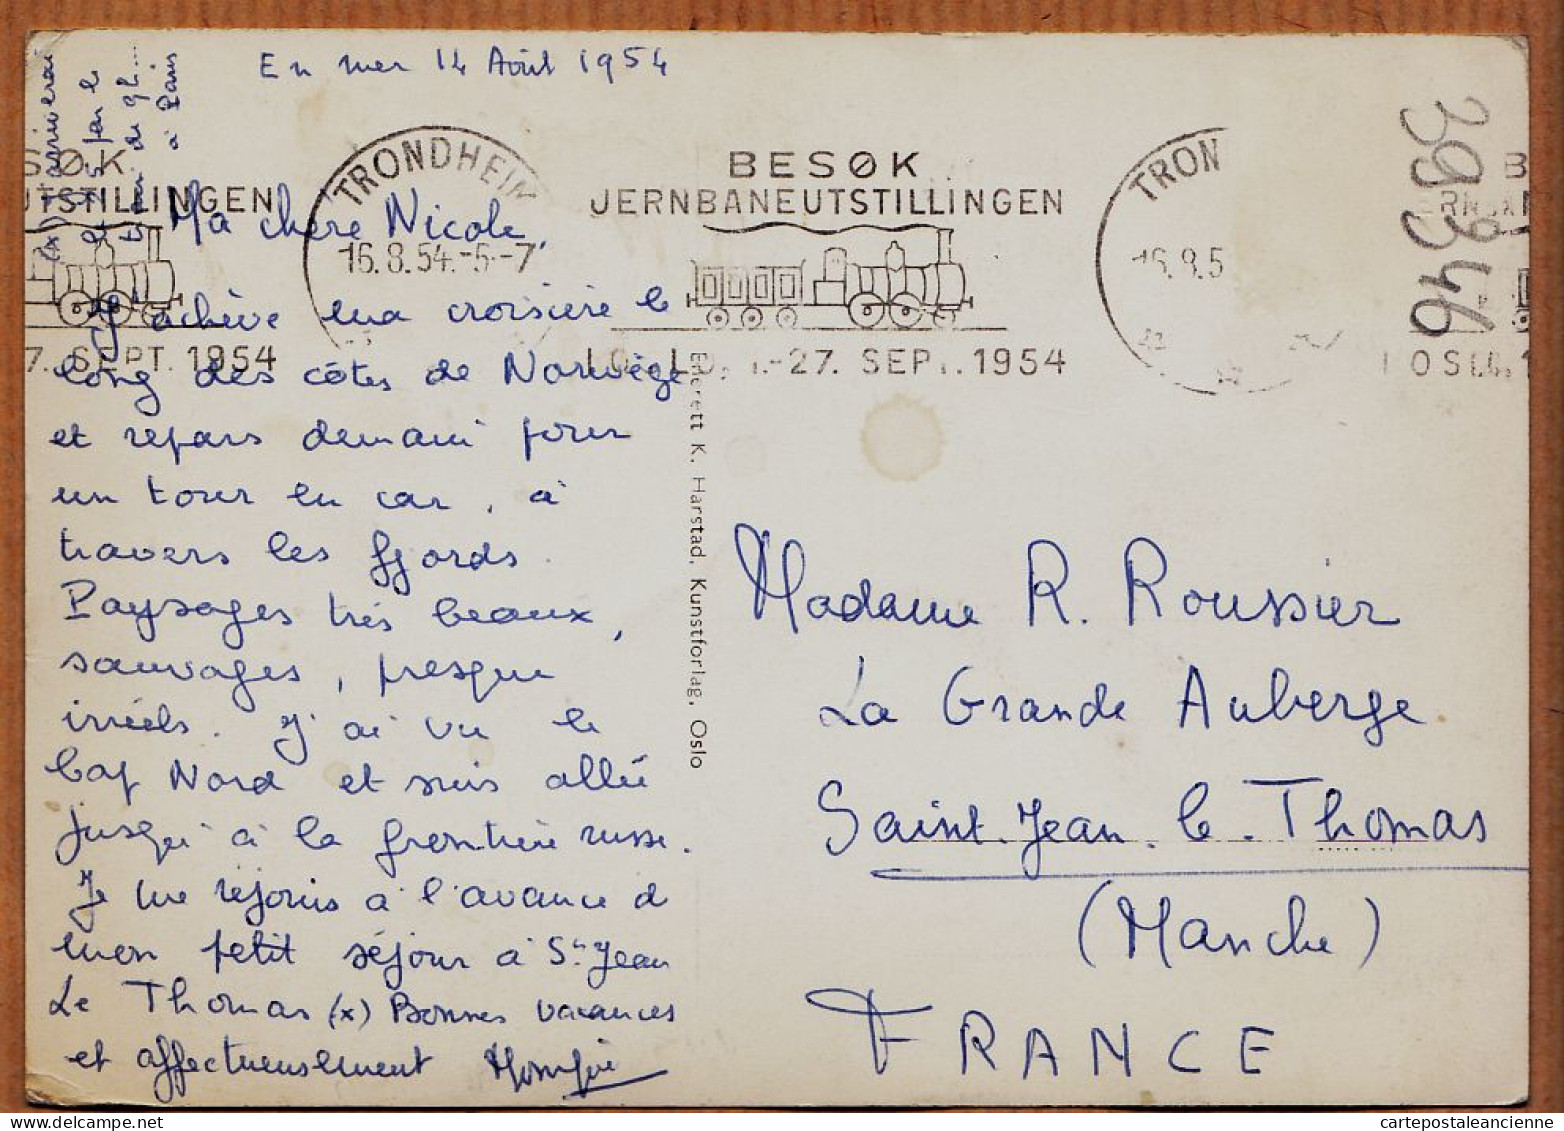 En mer 14 Août 1954
(x) J'arriverai
le 25 par le
train de 9h....
à Paris
SØK
UTSTILLINGEN
7. SEPT. 1954
TRONDHEIM
16.8.54.-5-7
BESØK
JERNBANEUTSTILLINGEN
OSLO, 1.-27. SEPT. 1954
TRON
16.8.5
B
OSLO, 1
39346
Ma chère Nicole,
J'achève ma croisière le
long des côtes de Norvège
et repars demain pour
un tour en car, à
travers les fjords.
Paysages très beaux,
sauvages, presque
irréels. J'ai vu le
Cap Nord et suis allée
jusqu'à la frontière russe.
Je me réjouis à l'avance d
mon petit séjour à St Jean
Le Thomas (x) Bonnes vacances
et affectueusement
Enerett K. Harstad, Kunstforlag, Oslo
Madame R. Roussier
La Grande Auberge
Saint-Jean-le-Thomas
(Manche)
FRANCE
cartepostaleancienne